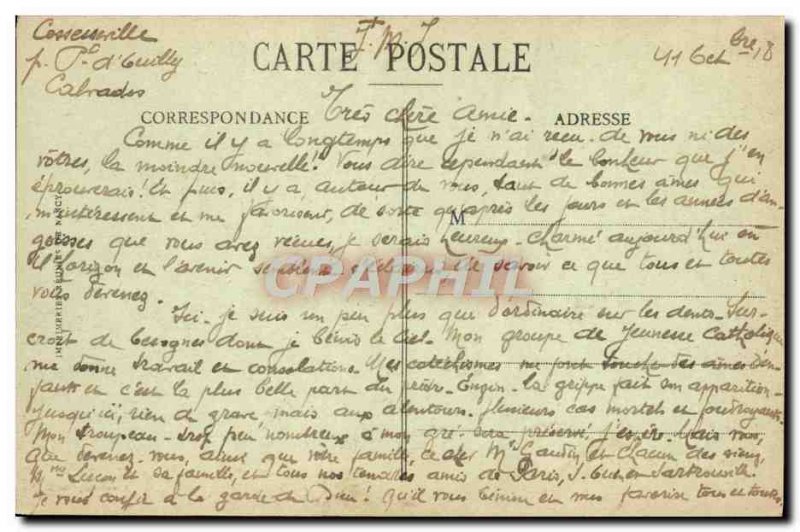 Cosseseville
p. Pt d'Ouilly
Calvados
J. M. J.
11 Octbre 18
CARTE POSTALE
CORRESPONDANCE
ADRESSE
Très chère Amie.
Comme il y a longtemps que je n'ai recu de vous ni des
vôtres, la moindre nouvelle! Vous dire cependant le bonheur que j'en
éprouverais! Et puis, il y a, autour de vous, tant de bonnes âmes qui
m'intéressent et me favorisent, de sorte qu'après les jours et les années d'an-
M
goisses que vous avez vécues, je serais heureux - charmé aujourd'hui où
l'horizon et l'avenir semblent de savoir ce que tous et toutes
vous devenez.
Ici - je suis un peu plus que d'ordinaire sur les dents. Sur-
croit de besognes dont je bénis le ciel. Mon groupe de Jeunesse Catholique
me donne travail et consolations. Mes catéchismes me font toucher des âmes d'en-
fants et c'est la plus belle part du. Enfin - la grippe fait son apparition -
Jusqu'ici, rien de grave mais aux alentours. plusieurs cas mortels et foudroyants.
Mon troupeau - trop peu nombreux à mon gré - sera préservé, j'espère. Mais vous,
que devenez-vous, ainsi que votre famille, ce cher Mr Gaudin et chacun des siens,
Mme et sa famille, et tous nos tendres amis de Paris, et Sartrouville.
Je vous confie à la garde du bon Dieu! Qu'il vous bénisse et me favorise tous et toutes.
IMPRIMERIES REUNIES DE NANCY
CPAPHIL